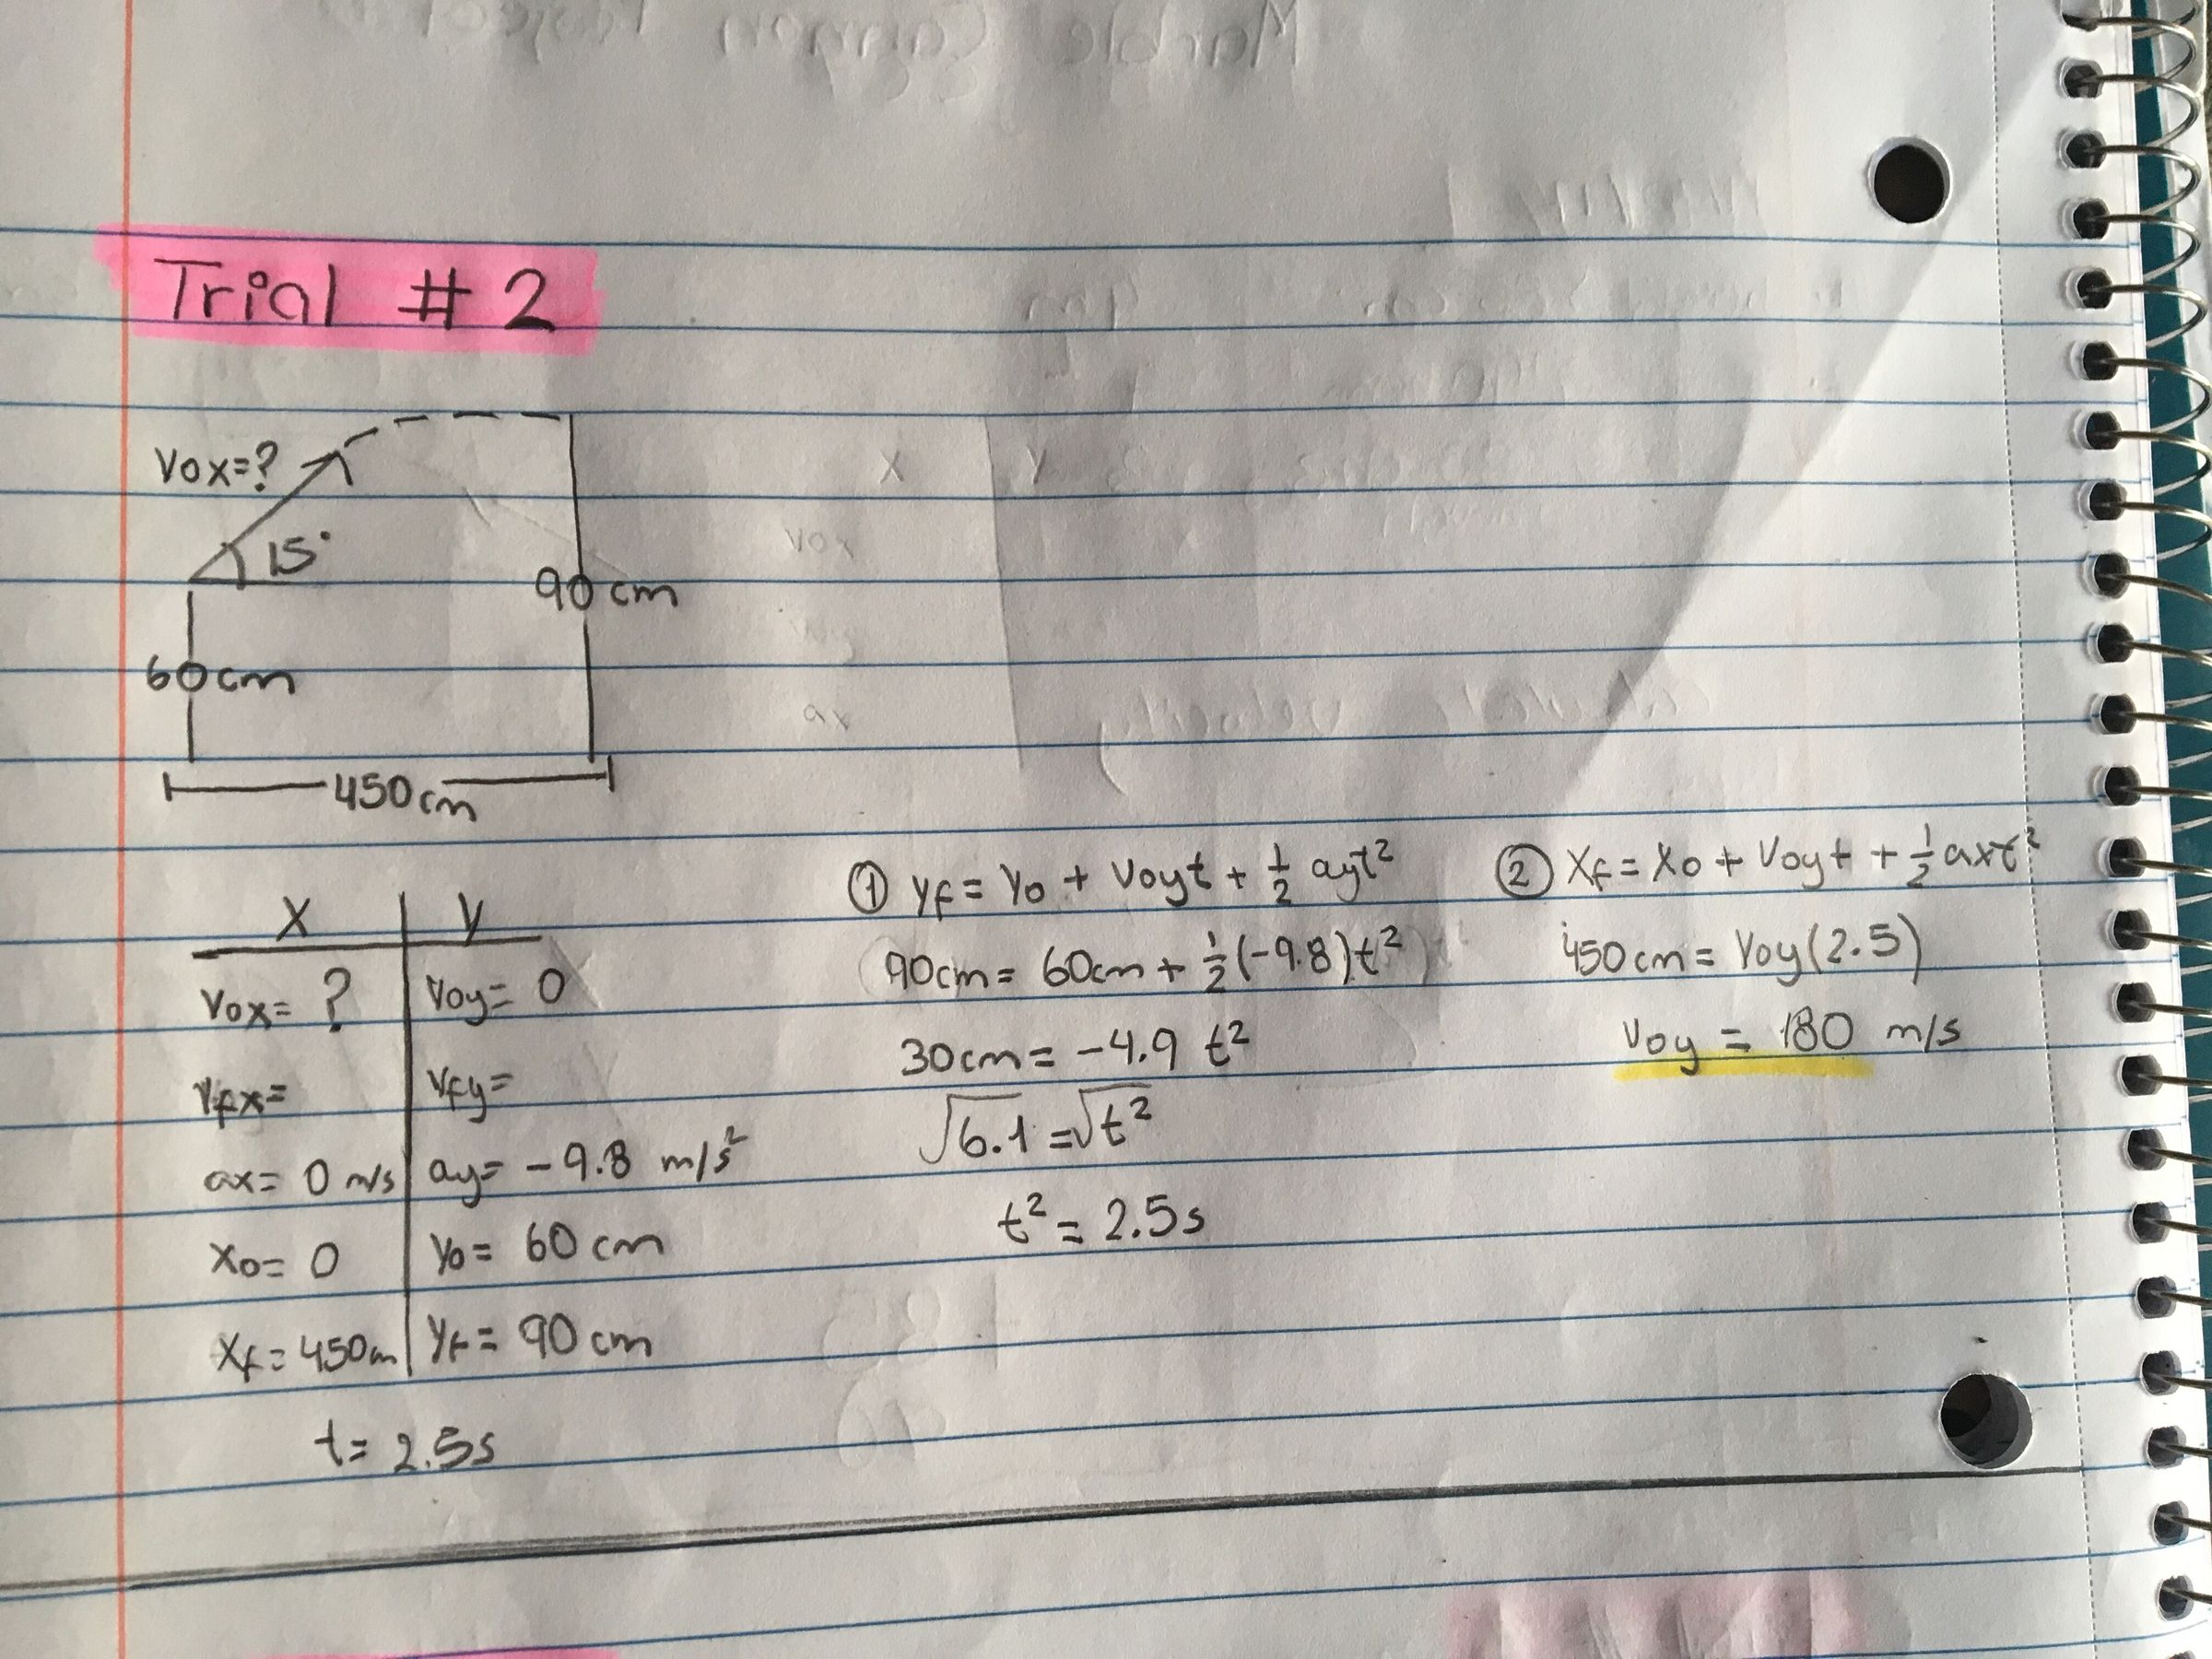 Trial # 2
Vox=?
15°
90 cm
60cm
450cm
X | y
Vox= ? | Voy= 0
Vfx= | Vfy=
ax= 0 m/s | ay= -9.8 m/s²
X0= 0 | Y0= 60 cm
Xf= 450cm | Yf= 90 cm
t= 2.5s
① Yf= Y0 + Voyt + 1/2 ayt²
90cm= 60cm + 1/2 (-9.8)t²
30cm= -4.9 t²
√6.1 =√t²
t² = 2.5s
② Xf= X0 + Voyt + 1/2 axt²
450cm= Voy(2.5)
Voy = 180 m/s